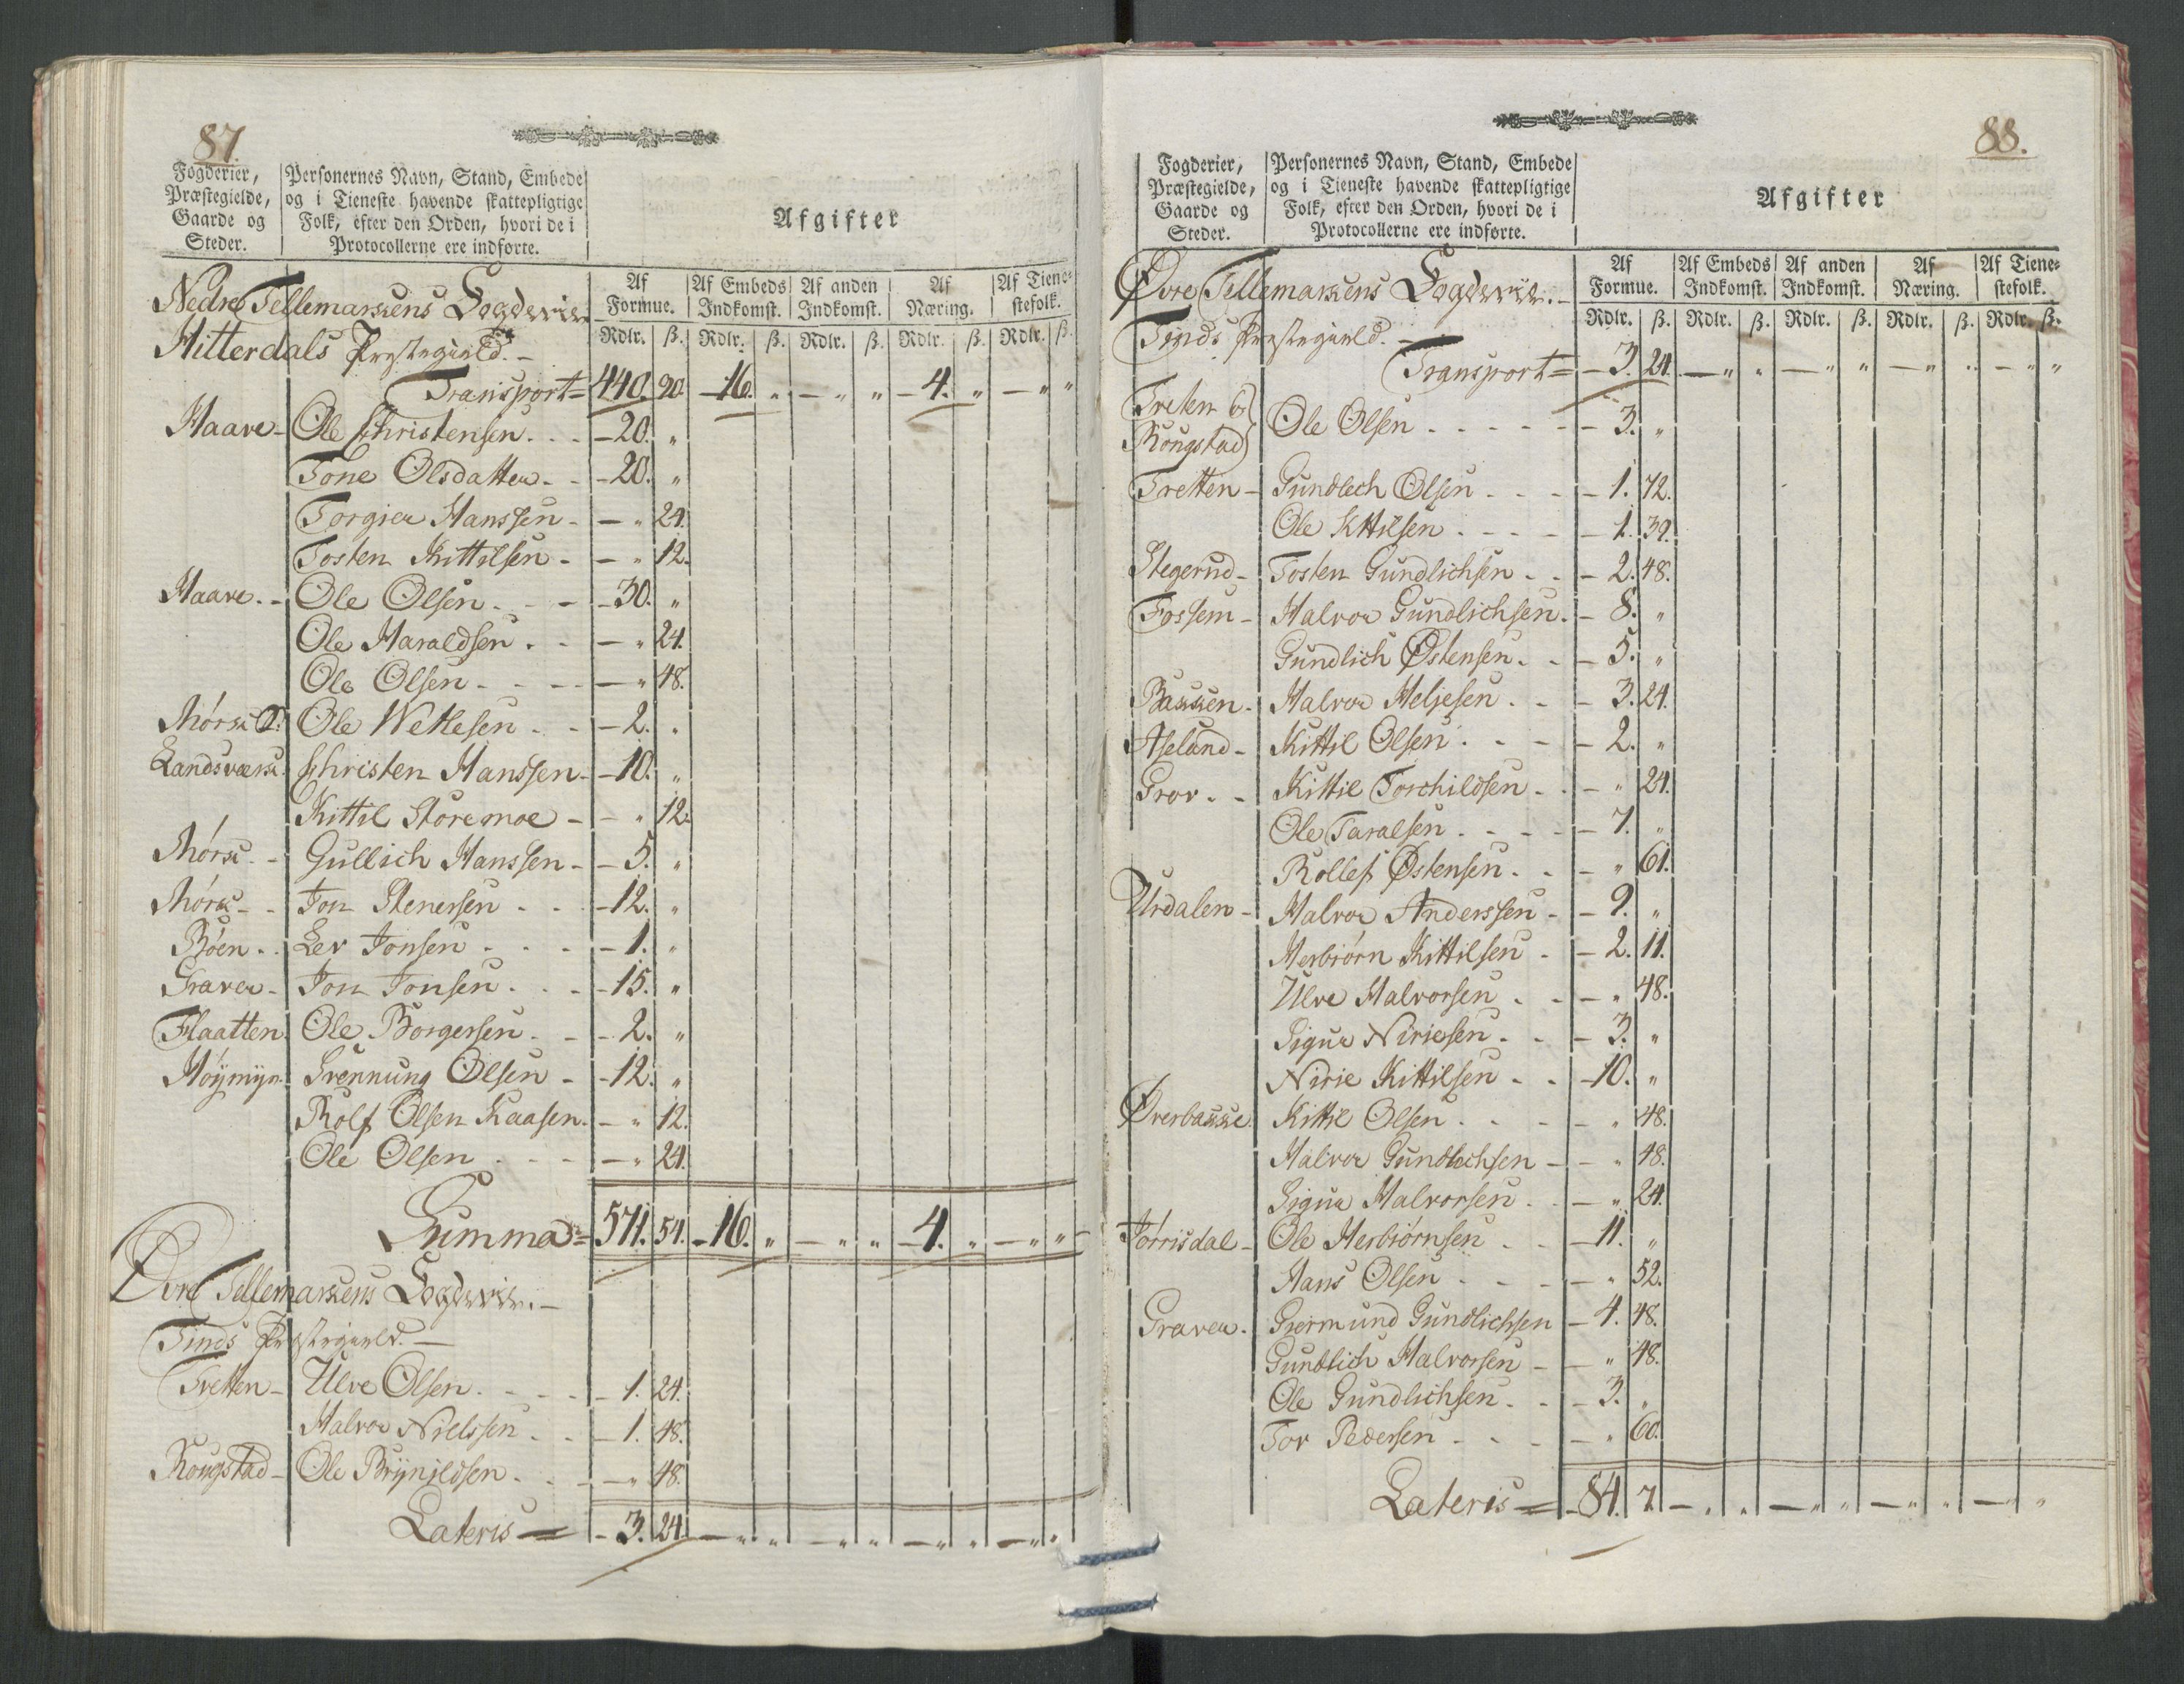 87.
Fogderier, Præstegielde, Gaarde og Steder.
Personernes Navn, Stand, Embede og i Tieneste havende skattepligtige Folk, efter den Orden, hvori de i Protocollerne ere indførte.
Afgifter
Af Formue. Af Embeds Indkomst. Af anden Indkomst. Af Næring. Af Tienestefolk.
Rdlr. ß. Rdlr. ß. Rdlr. ß. Rdlr. ß. Rdlr. ß.
Nedre Tellemarkens Fogderie
Hitterdals Præstegield. –
Transport = 440. 90. – 16. „ – „ „ – 4. „ – „ „
Haave – Ole Christensen – 20. „
Tone Olsdatter – 20. „
Torgier Hanssen – „ 24.
Tosten Kittilsen – „ 12.
Haave. – Ole Olsen – 30. „
Ole Haraldsen – „ 24.
Ole Olsen – „ 48.
Mørk Ø. Ole Wetlesen – 2. „
Landsværk. Christen Hanssen – 10. „
Kittil Storemoe – „ 12.
Mørk – Gullich Hanssen – 5. „
Mørk – Jon Stenersen – 12. „
Bøen – Lev Jonsen – 1. „
Graver – Jon Jonsen – 15. „
Flaatten. Ole Borgersen – 2. „
Høymyr. Grennung Olsen – 12. „
Rolf Olsen Kaasen – „ 12.
Ole Olsen – „ 24.
Summa = 571. 54. – 16. „ – „ „ – 4. „ – „ „
Øvre Tellemarkens Fogderie. –
Tinds Præstegield. –
Tretten – Ulve Olsen – 1. 24.
Halvor Nielssen – 1. 48.
Rougstad – Ole Brynildsen – „ 48.
Lateris = – 3. 24. – „ „ – „ „ – „ „ – „ „
88.
Fogderier, Præstegielde, Gaarde og Steder.
Personernes Navn, Stand, Embede og i Tieneste havende skattepligtige Folk, efter den Orden, hvori de i Protocollerne ere indførte.
Afgifter
Af Formue. Af Embeds Indkomst. Af anden Indkomst. Af Næring. Af Tienestefolk.
Rdlr. ß. Rdlr. ß. Rdlr. ß. Rdlr. ß. Rdlr. ß.
Øvre Tellemarkens Fogderie. –
Tinds Præstegield. –
Transport = – 3. 24. – „ „ – „ „ – „ „ – „ „
Treten og Rougstad Ole Olsen – 3. „
Tretten – Gundlech Olsen – 1. 72.
Ole Kittilsen – 1. 39.
Stegerud – Tosten Gundlichsen – 2. 48.
Fossem – Halvor Gundlichsen – 8. „
Gundlich Østensen – 5. „
Bakken – Halvor Heljesen – 3. 24.
Aseland – Kittil Olsen – 2. „
Grov – Kittil Torchildsen – „ 24.
Ole Taralsen – 7. „
Rollef Østensen – „ 61.
Urdalen – Halvor Anderssen – 9. „
Herbiørn Kittilsen – 2. 11.
Ulve Halvorsen – „ 48.
Sigur Niriesen – 3. „
Nirie Kittilsen – 10. „
Øverbakke. Kittil Olsen – „ 48.
Halvor Gundlechsen – „ 48.
Sigur Halvorsen – „ 24.
Jørrisdal – Ole Herbiørnsen – 11. „
Hans Olsen – „ 52.
Graver. Giermund Gundlichsen – 4. 48.
Gundlich Halvorsen – „ 48.
Ole Gundlichsen – 3. „
Tor Pedersen – „ 60.
Lateris = – 84. 7. – „ „ – „ „ – „ „ – „ „